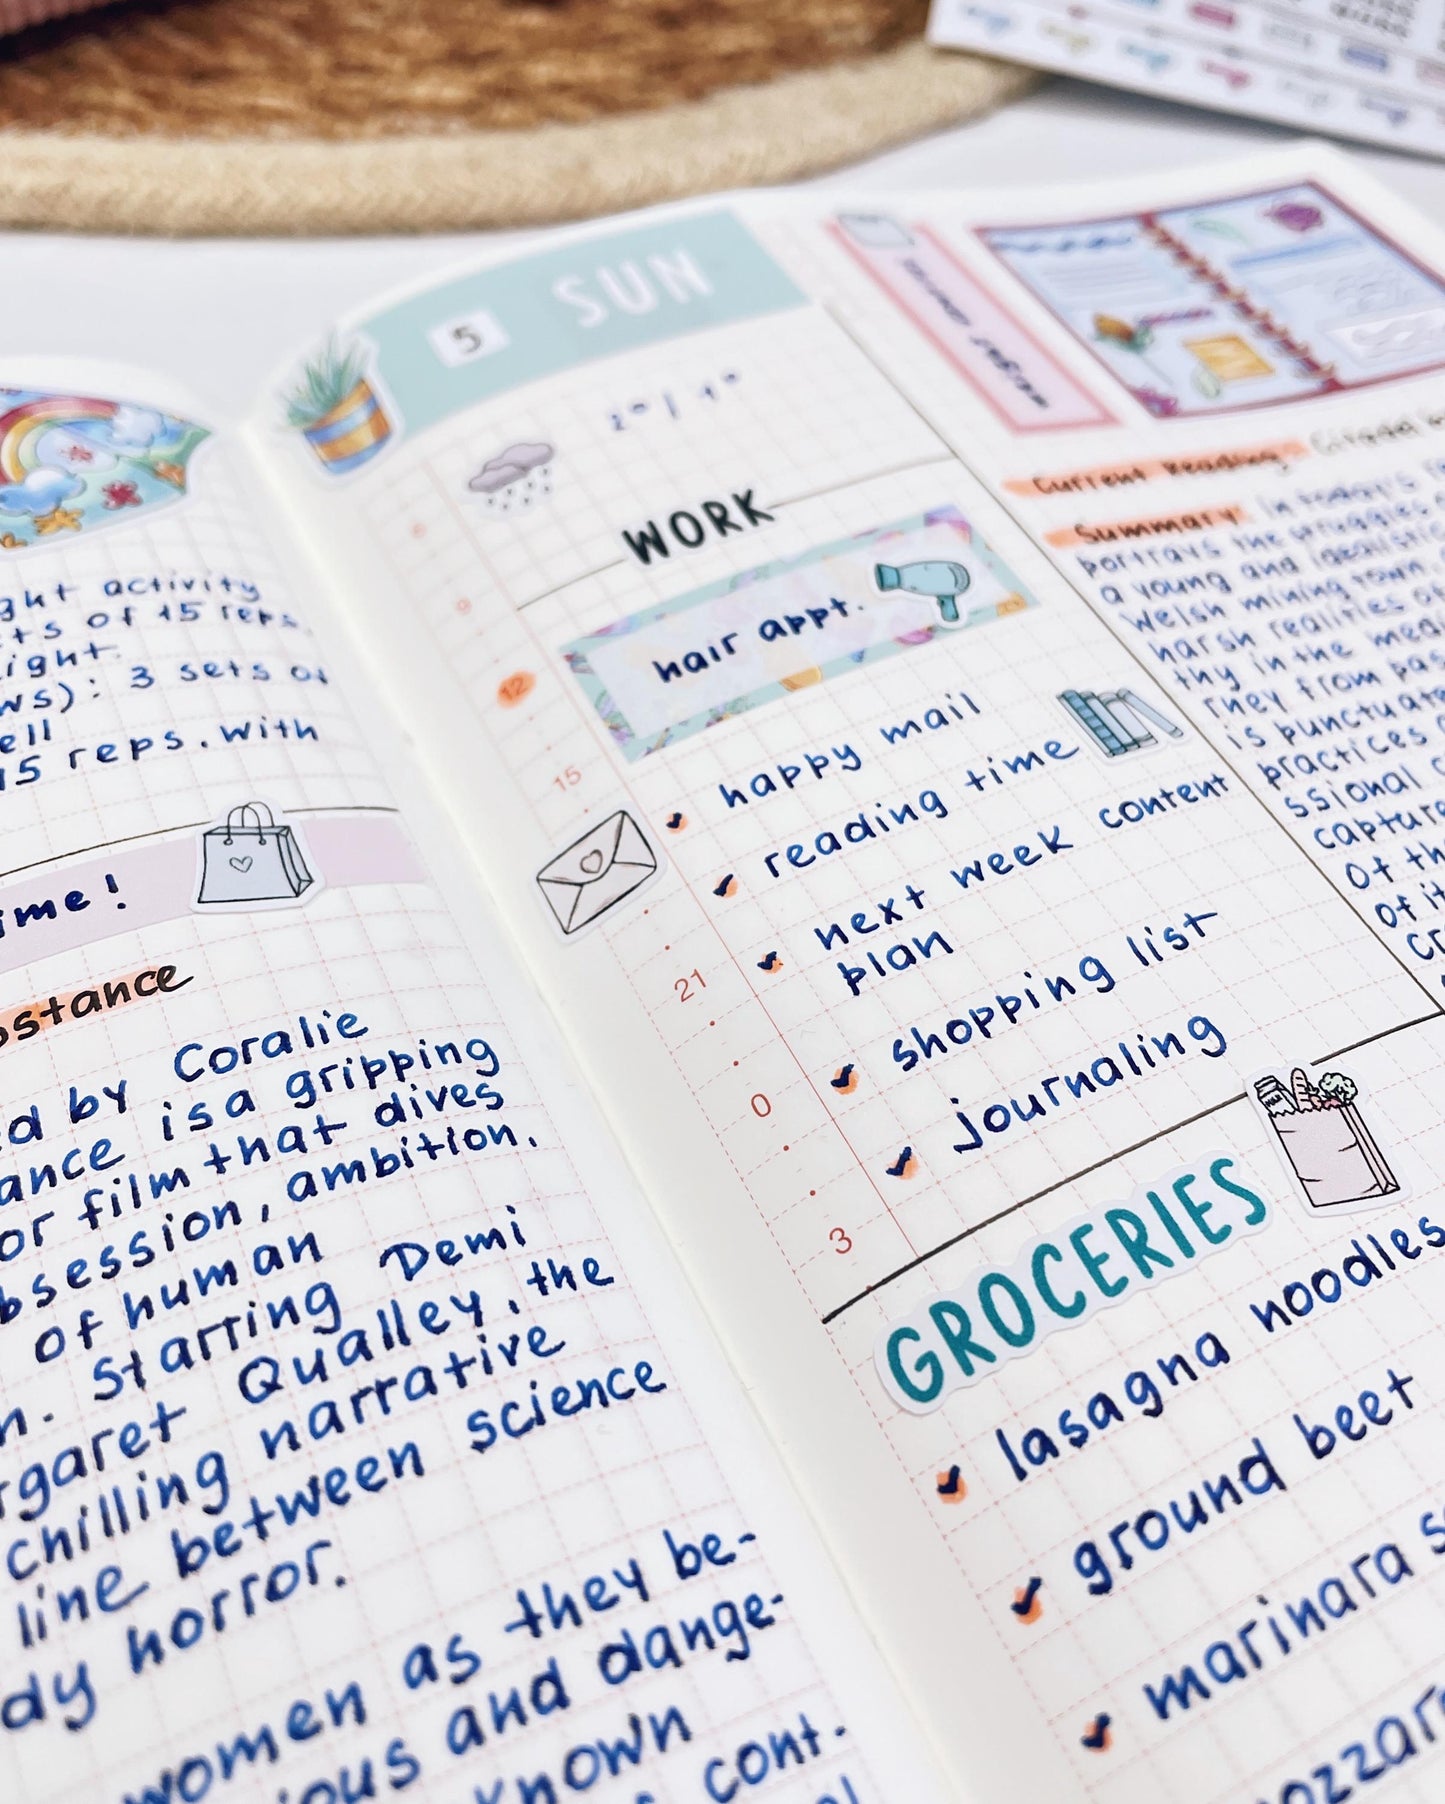 ght activity
ts of 15 reps.
ight.
ws): 3 sets of
ell
15 reps. with
ime!
ostance
ed by Coralie
ance is a gripping
or film that dives
bsession, ambition,
of human
n. Starring Demi
rgaret Qualley, the
chilling narrative
line between science
dy horror.
women as they be-
ious and dange-
known
cont.
5 SUN
WORK
hair appt.
happy mail
reading time
next week content
plan
shopping list
journaling
12
15
21
0
3
GROCERIES
lasagna noodles
ground beet
marinara s
ozzar
Current Reading: Citadel
Summary: In today's
portrays the struggles
a young and idealistic
Welsh mining town.
harsh realities of
thy in the medi
rney from pas
is punctuate
practices
ssional c
capture
of th
of it
cr